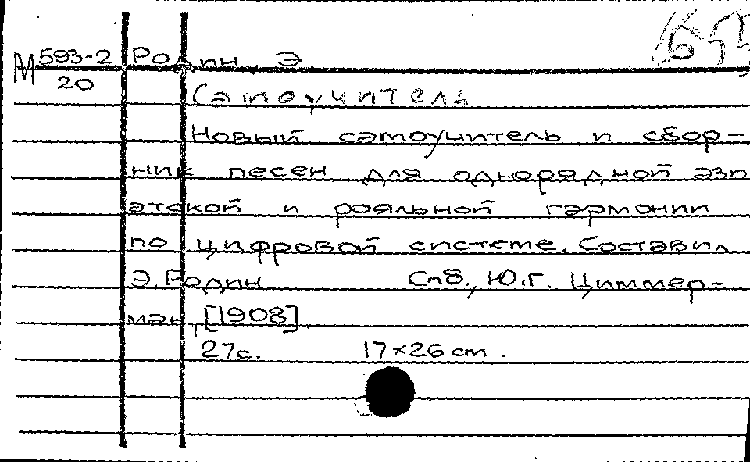 М 593-2 Родин, Э.
20
Самоучитель
Новый самоучитель и сбор-
ник песен для однорядной ази
атской и рояльной гармонии
по цифровой системе. Составил
Э. Родин Спб., Ю.Г. Циммер-
ман, [1908]
27с. 17×26 cm.